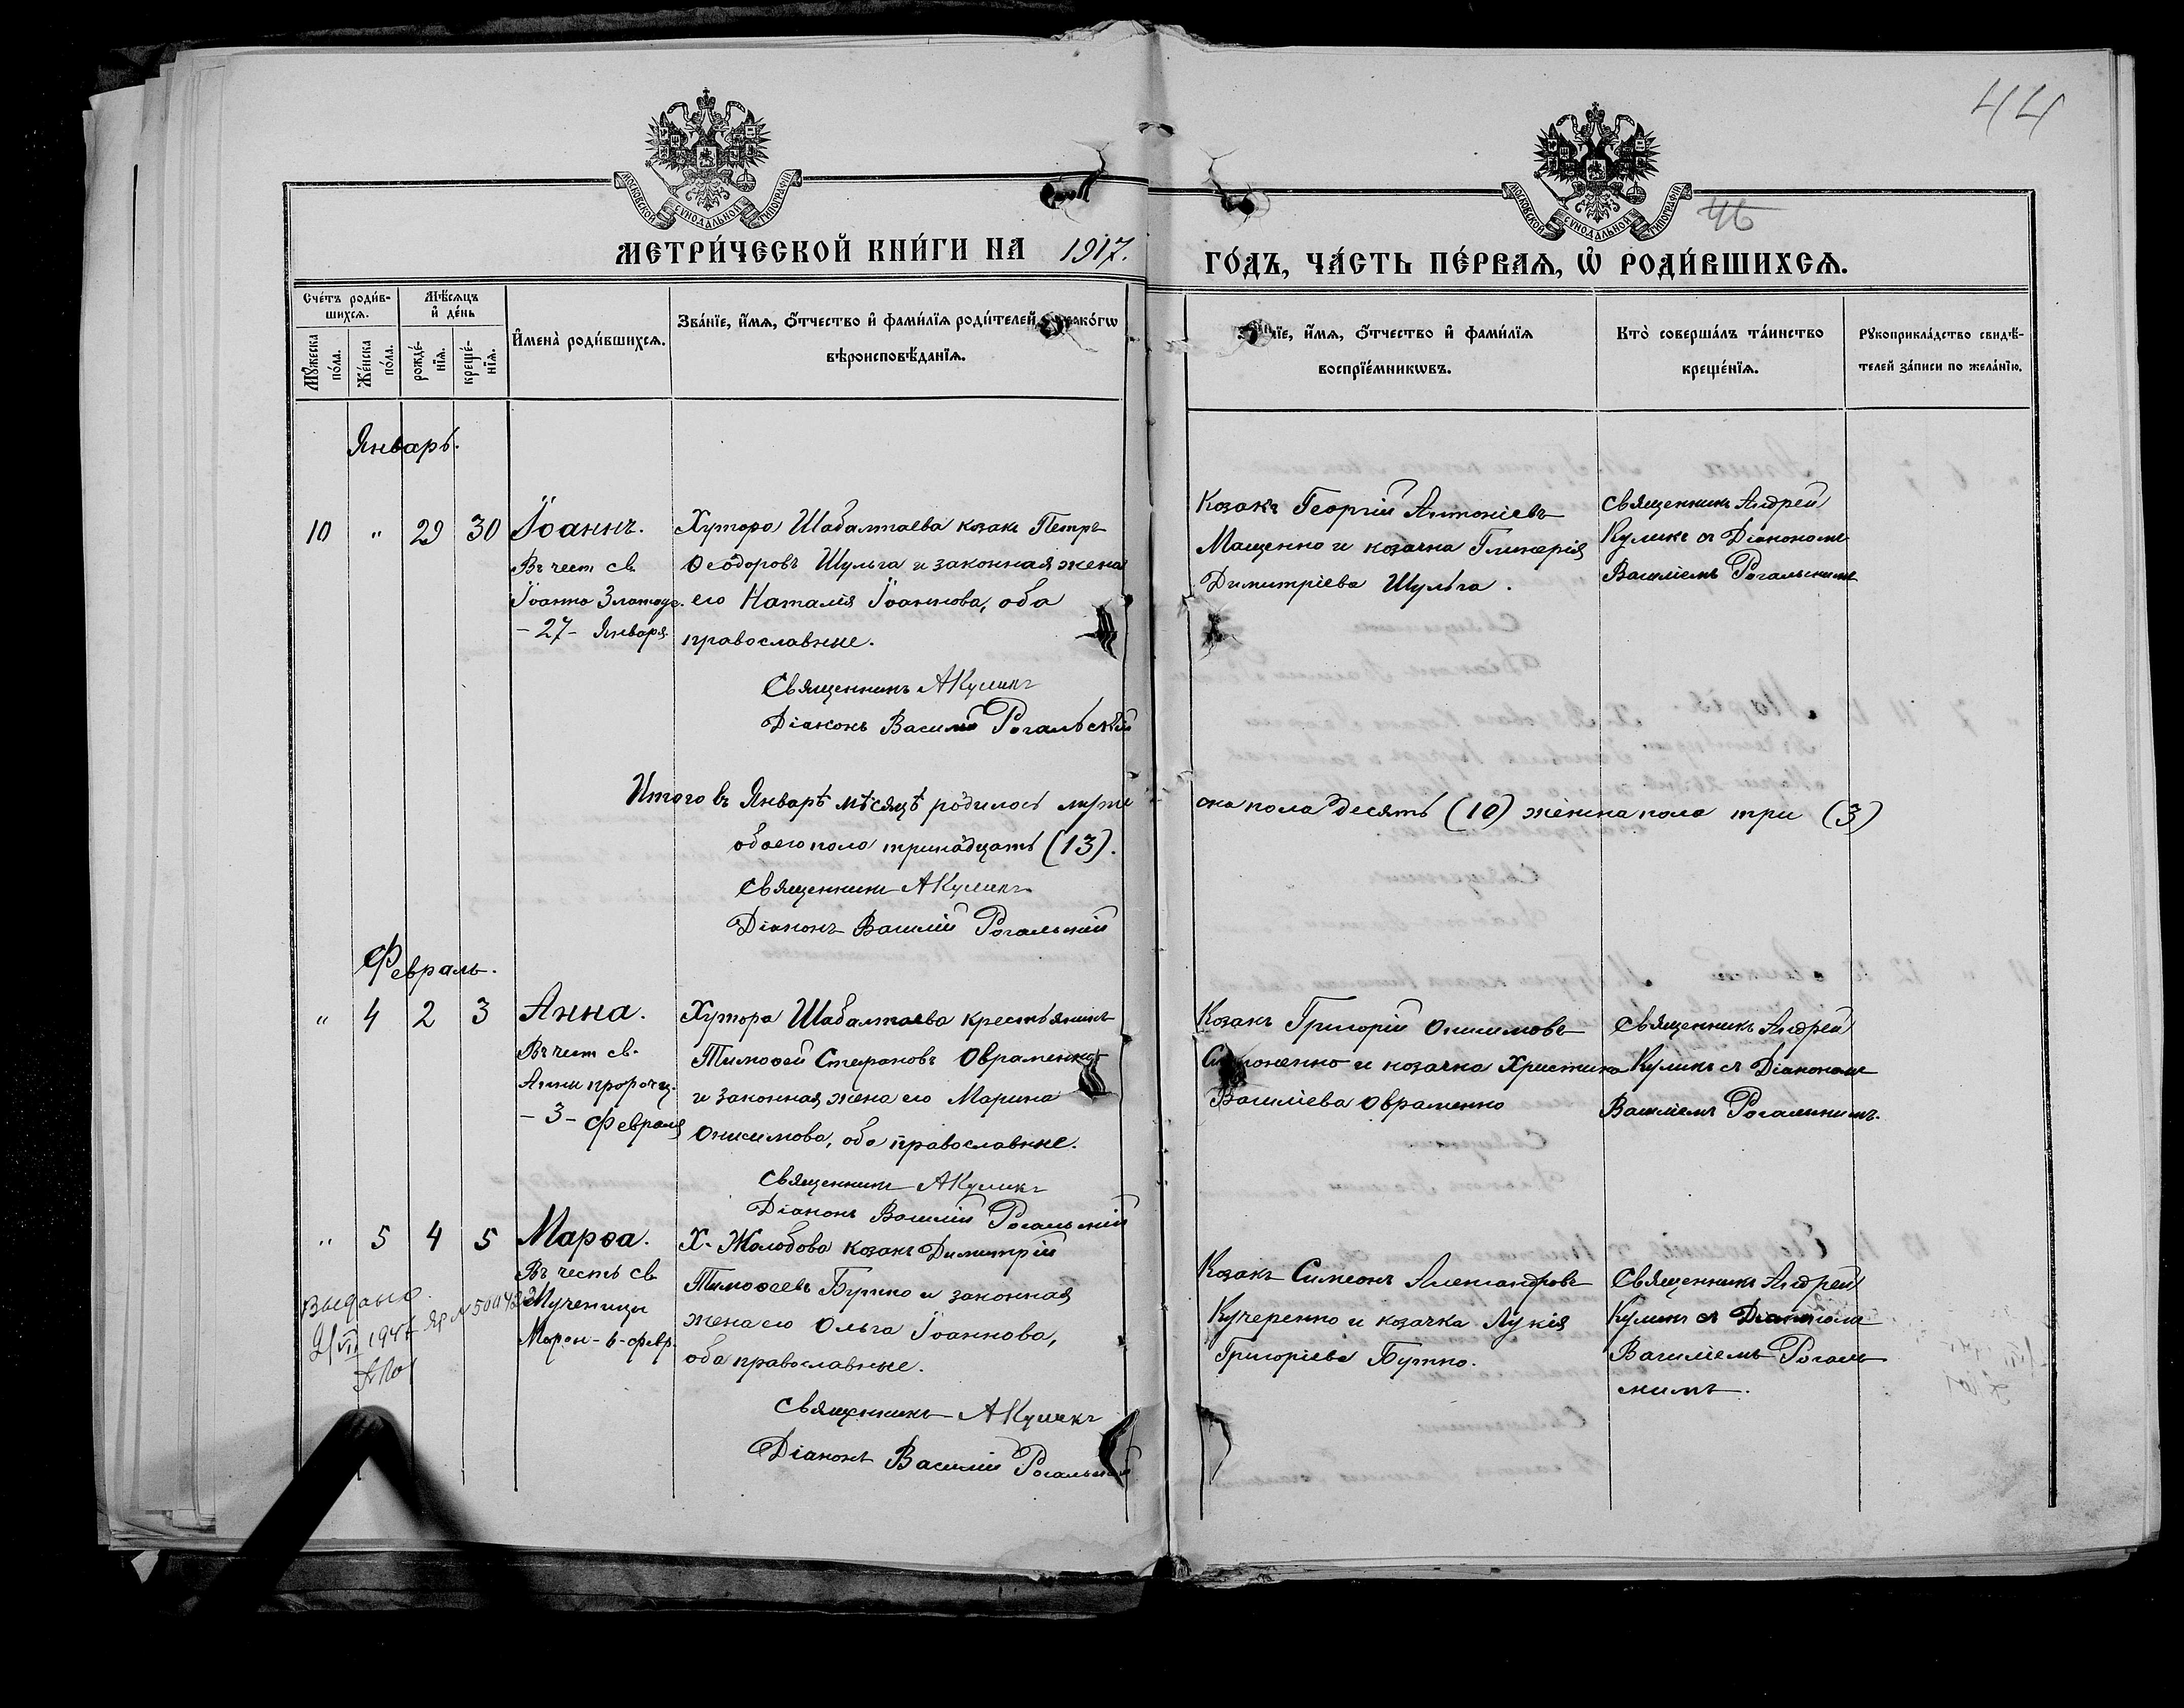 44
МОСКОВСКОЙ СѴНОДАЛЬНОЙ ТИПОГРАФІИ
МОСКОВСКОЙ СѴНОДАЛЬНОЙ ТИПОГРАФІИ
46
МЕТРИ́ЧЕСКОЙ КНИ́ГИ НА 1917.
ГО́ДЪ, ЧА́СТЬ ПЕ́РВАѦ, Ѡ҆ РОДИ́ВШИХСѦ.
Сче́тъ роди́в-
шихсѧ.
Мѣ́сѧцъ
и҆ де́нь
Мꙋ́жеска
по́ла.
Же́нска
по́ла.
рожде́-
нїѧ.
креще́-
нїѧ.
И҆мена̀ роди́вшихсѧ.
Зва́нїе, и҆́мѧ, ѻ҆́тчество и҆ фами́лїѧ роди́телей
вѣроисповѣ́данїѧ.
и҆́мѧ, ѻ҆́тчество и҆ фами́лїѧ
воспрїе́мникѡвъ.
Кто̀ соверша́лъ та́инство
креще́нїѧ.
Рꙋкоприкла́дство свидѣ́-
телей за́писи по жела́нїю.
Январь.
10 " 29 30 Іоаннъ.
Въ чест св.
Іоанна Златоус.
- 27 - Января
Хутора Шабалтаева козакъ Петръ
Ѳеодоровъ Шульга и законная жена
его Наталія Іоаннова, оба
православные.
Священникъ А Куликъ
Діаконъ Василій Рогальскій
Козакъ Георгій Антоніевъ
Мащенко и козачка Гликерія
Димитріева Шульга.
Священникъ Андрей
Куликъ съ Діакономъ
Василіемъ Рогальскимъ
Итого въ Январѣ мѣсяцѣ родилось муже
ска пола десять (10) женска пола три (3)
обоего пола тринадцать (13).
Священникъ А Куликъ
Діаконъ Василій Рогальскій
Февраль.
" 4 2 3 Анна.
Въ чест св.
Анны пророчиц.
- 3 - Февраля
Хутора Шабалтаева крестьянинъ
Тимоѳей Стефановъ Овраменко
и законная жена его Марина
Онисимова, оба православные.
Священникъ А Куликъ
Діаконъ Василій Рогальскій
Козакъ Григорій Онисимовъ
и козачка Христина
Василіева Овраменко
Священникъ Андрей
Куликъ съ Діакономъ
Василіемъ Рогальскимъ.
" 5 4 5 Марѳа.
Въ честь св.
Мученицы
Марѳы - 6 - февр.
Х. Жолобова козакъ Димитрій
Тимоѳеевъ Бутко и законная
жена его Ольга Іоаннова,
оба православные.
Священникъ А Куликъ
Діаконъ Василій Рогальскій
Козакъ Симеонъ Александровъ
Кучеренко и козачка Лукія
Григоріева Бутко.
Священникъ Андрей
Куликъ съ Діакономъ
Василіемъ Рогаль
скимъ.
Выдано